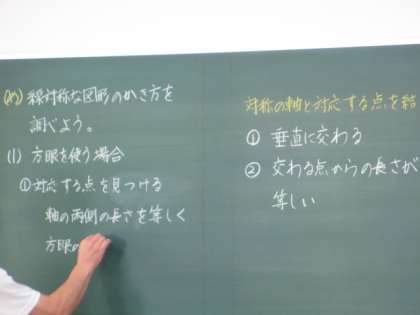 (め) 線対称な図形のかき方を
調べよう。
(1) 方眼を使う場合
① 対応する点を見つける
軸の両側の長さを等しく
方眼の
対称の軸と対応する点を結
① 垂直に交わる
② 交わる点からの長さが
等しい